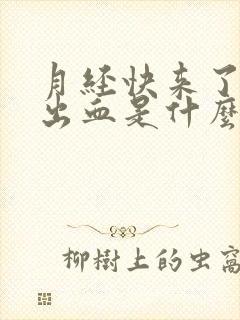 月经快来了
出血是什麼
柳樹上的虫窩